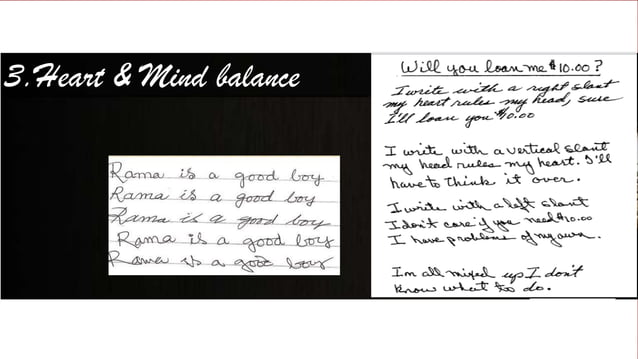 3.Heart & Mind balance
Rama is a good boy
Rama is a good boy
Rama is a good boy
Rama is a good boy
Rama is a good boy
Will you loan me $10.00?
I write with a right slant
my heart rules my head, sure
I'll loan you $10.00
I write with a vertical slant
my head rules my heart. I'll
have to think it over.
I write with a left slant
I don't care if you need $10.00
I have problems of my own.
I'm all mixed up I don't
know what to do.